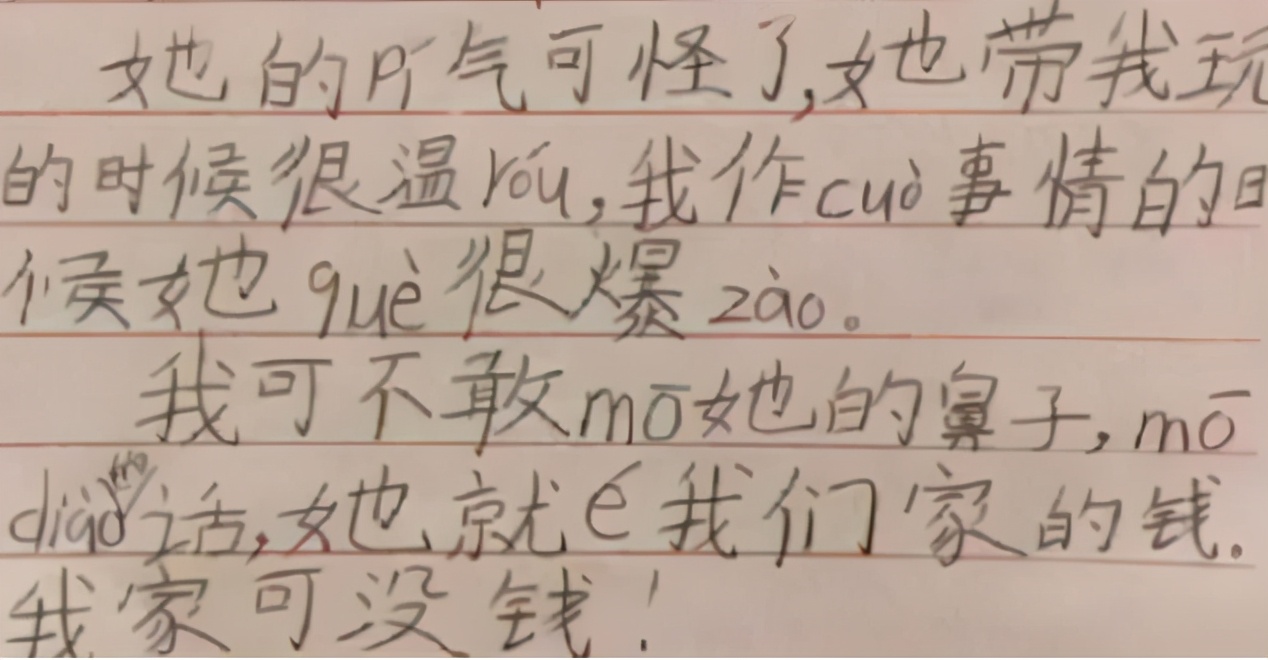 她的pí气可怪了,她带我玩
的时候很温róu,我作cuò事情的
候她què很爆zào。
我可不敢mō她的鼻子,mō
diào话,她就é我们家的钱。
我家可没钱!